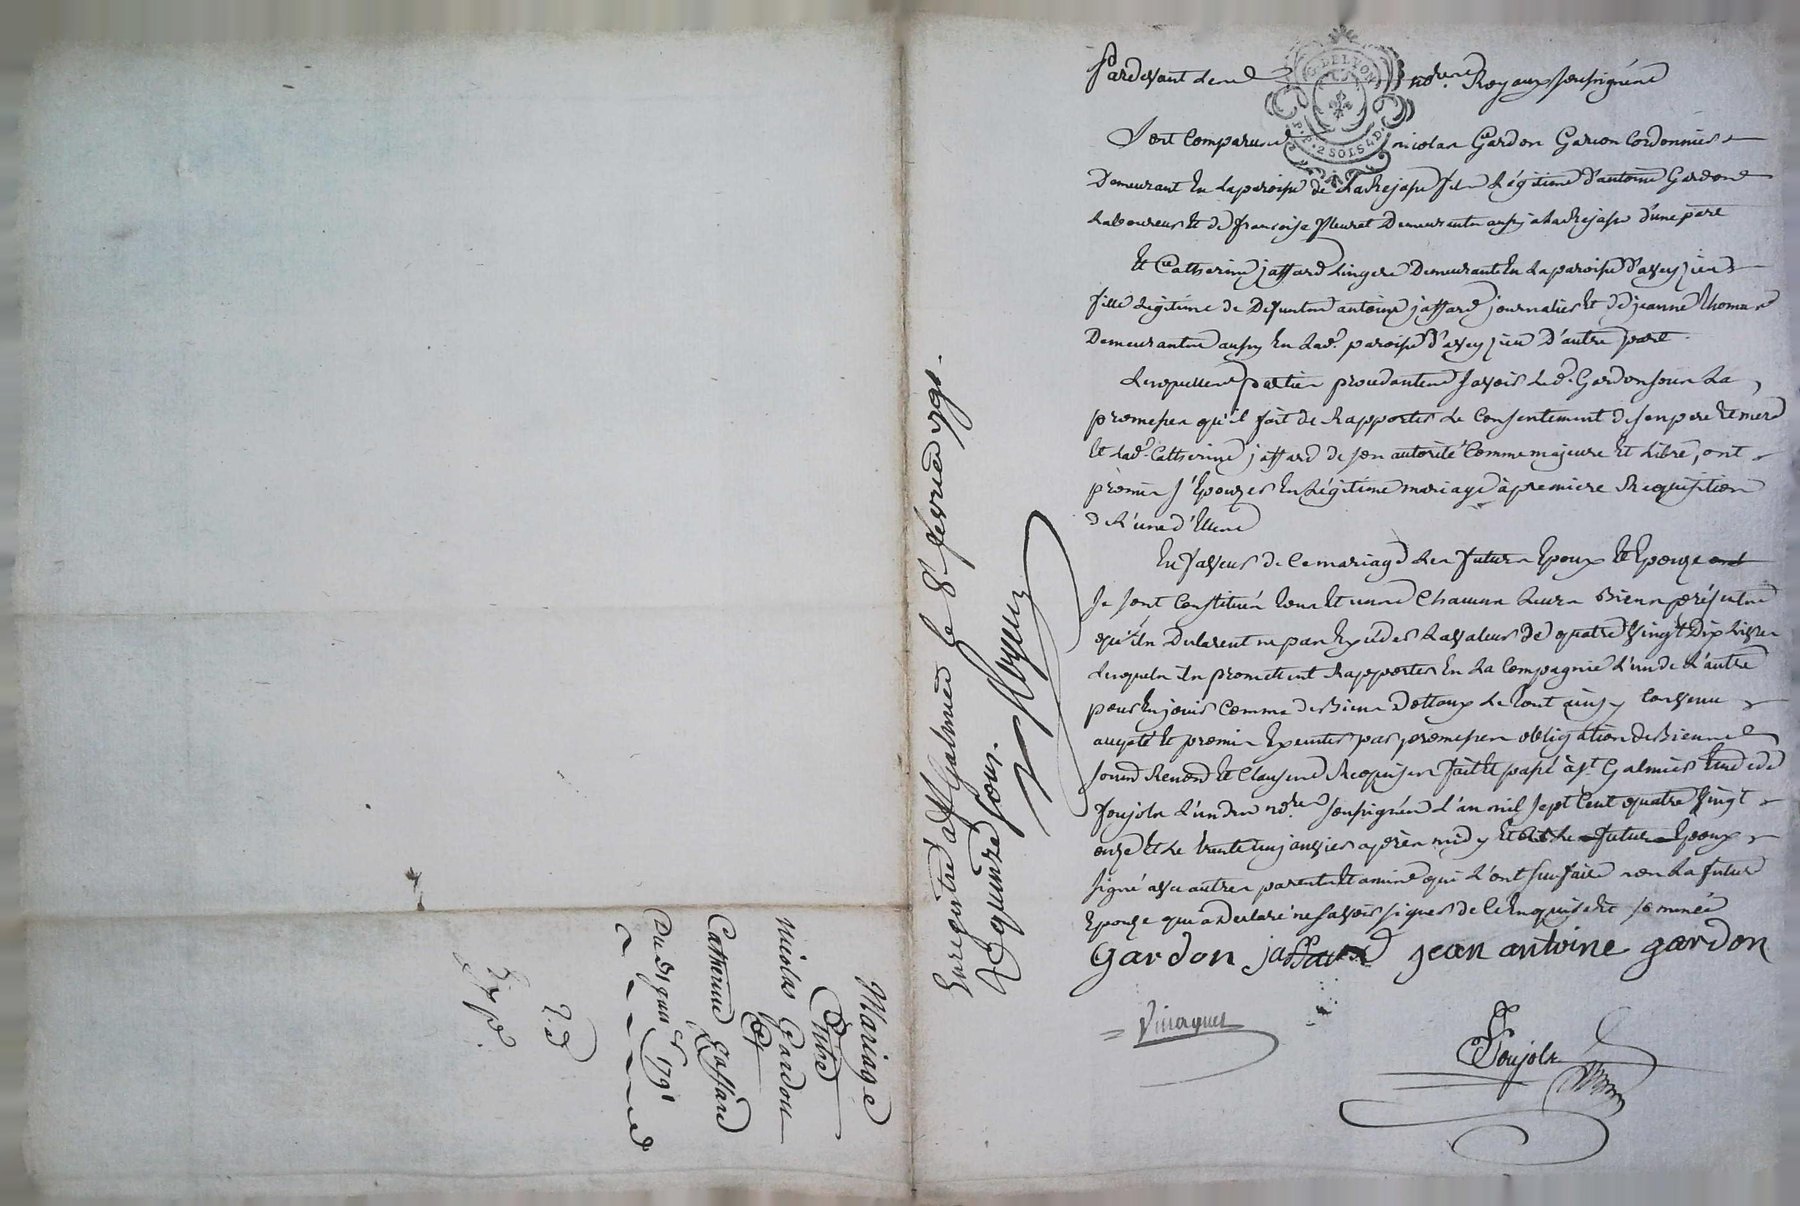 Pardevant les no.res Royaux soussignés
G. DE LYON
P.P. 2 SOLS 4 D.
Sont Comparus nicolas Gardon Garcon Cordonnier
Demeurant En la paroisse de fils Légitime d'antoine Gardon
Laboureur Et de francoise fleuret Demeurants aussy d'une part
Et Catherine jaffard Lingere Demeurante En la paroisse d'aveyzieu
fille Légitime de Defunt antoine jaffard journalier Et de jeanne thomas
Demeurante aussy En lad. paroisse d'aveyzieu D'autre part
Lesquelles parties procedantes savoir led. Gardon sous La
promesse qu'il fait de Rapporter Le Consentement de son pere Et mere
Et lad. Catherine jaffard de son autorité Comme majeure Et Libre, ont
promis s'Epouzer En Légitime mariage à premiere Requisition
de L'une d'Elles
En faveur de Ce mariage Les futurs Epoux Et Epouze ont
Se sont Constitués tous Et uns Chacuns Leurs Biens présents
qu'ils Declarent ne pas Exceder La valeur de quatre vingt Dix Livres
Lesquels ils promettent Rapporter En La Compagnie L'un de L'autre
pour En jouir Comme de Biens Dottaux Le tout ainsy Convenu
accepté Et promis Executer par promesses obligation de Biens
soumd Renond Et Clauses Requises fait Et passé à St. Galmier Etude de
foujols L'un des no.res soussignés L'an mil sept Cent quatre vingt
onze Et Le trente un janvier après midy Et Ledit futur Epoux
signé avec autres parents Et amis qui L'ont sceu faire non La future
Epouze qui a Declaré ne savoir signer de Ce Enquise Et sommée
gardon jaffard jean antoine gardon
foujols
Enregistré a St Galmier le 8 fevrier 1791.
Reçu quinze sous.
Mariage
Entre
Nicolas Gardon
Et
Catherine Jaffard
Du 31 janv.er 1791